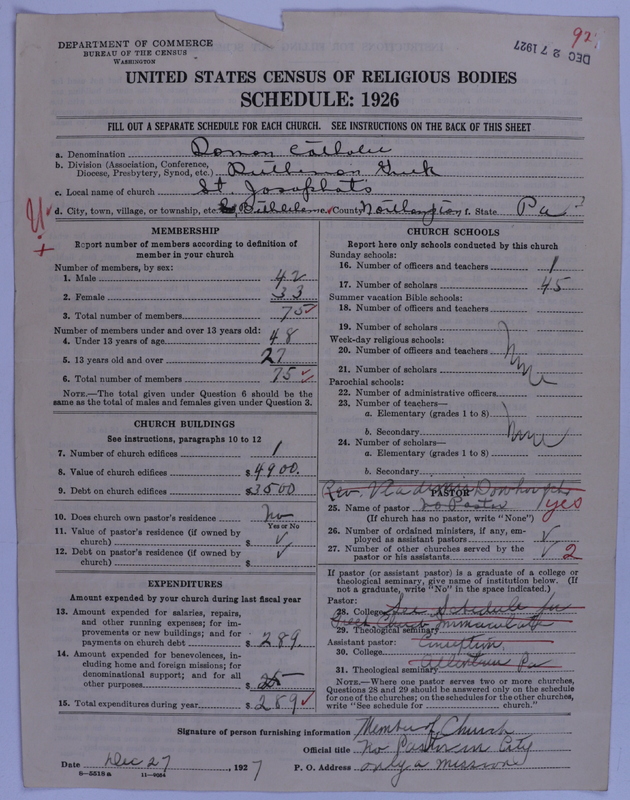 92
DEC 27 1927
DEPARTMENT OF COMMERCE
BUREAU OF THE CENSUS
WASHINGTON
UNITED STATES CENSUS OF RELIGIOUS BODIES
SCHEDULE: 1926
FILL OUT A SEPARATE SCHEDULE FOR EACH CHURCH. SEE INSTRUCTIONS ON THE BACK OF THIS SHEET
a. Denomination Roman Catholic
b. Division (Association, Conference,
Diocese, Presbytery, Synod, etc.) Ruthenian Greek
c. Local name of church St. Josaphats
d. City, town, village, or township, etc. Bethlehem e. County Northampton f. State Pa
MEMBERSHIP
Report number of members according to definition of
member in your church
Number of members, by sex:
1. Male 42
2. Female 33
3. Total number of members 75
Number of members under and over 13 years old:
4. Under 13 years of age 48
5. 13 years old and over 27
6. Total number of members 75
NOTE.—The total given under Question 6 should be
same as the total of males and females given under Question 3.
CHURCH BUILDINGS
See instructions, paragraphs 10 to 12
7. Number of church edifices 1
8. Value of church edifices $ 4900.
9. Debt on church edifices $ 3500
10. Does church own pastor's residence No
Yes or No
11. Value of pastor's residence (if owned by
church) $ ✓
12. Debt on pastor's residence (if owned by
church) $ ✓
EXPENDITURES
Amount expended by your church during last fiscal year
13. Amount expended for salaries, repairs,
and other running expenses; for im-
provements or new buildings; and for
payments on church debt $ 289.
14. Amount expended for benevolences, in-
cluding home and foreign missions; for
denominational support; and for all
other purposes $
15. Total expenditures during year $ 289
CHURCH SCHOOLS
Report here only schools conducted by this church
Sunday schools:
16. Number of officers and teachers 1
17. Number of scholars 45
Summer vacation Bible schools:
18. Number of officers and teachers
19. Number of scholars
Week-day religious schools:
20. Number of officers and teachers None
21. Number of scholars
Parochial schools:
22. Number of administrative officers
23. Number of teachers—
a. Elementary (grades 1 to 8)
b. Secondary None
24. Number of scholars—
a. Elementary (grades 1 to 8)
b. Secondary
Rev. Vladimir
PASTOR
25. Name of pastor no Pastor yes
(If church has no pastor, write "None")
26. Number of ordained ministers, if any, em-
ployed as assistant pastors ✓
27. Number of other churches served by the
pastor or his assistants ✓ 2
If pastor (or assistant pastor) is a graduate of a college or
theological seminary, give name of institution below. (If
not a graduate, write "No" in the space indicated.)
Pastor:
28. College See Schedule for
29. Theological seminary Greek Church Immaculate
Assistant pastor: Conception
30. College
31. Theological seminary Allentown Pa
NOTE.—Where one pastor serves two or more churches,
Questions 28 and 29 should be answered only on the schedule
for one of the churches; on the schedules for the other churches,
write "See schedule for church."
Signature of person furnishing information Member of Church
Official title No Pastor in City
Date Dec 27, 1927 P. O. Address only a mission
8—5518a 11—8054